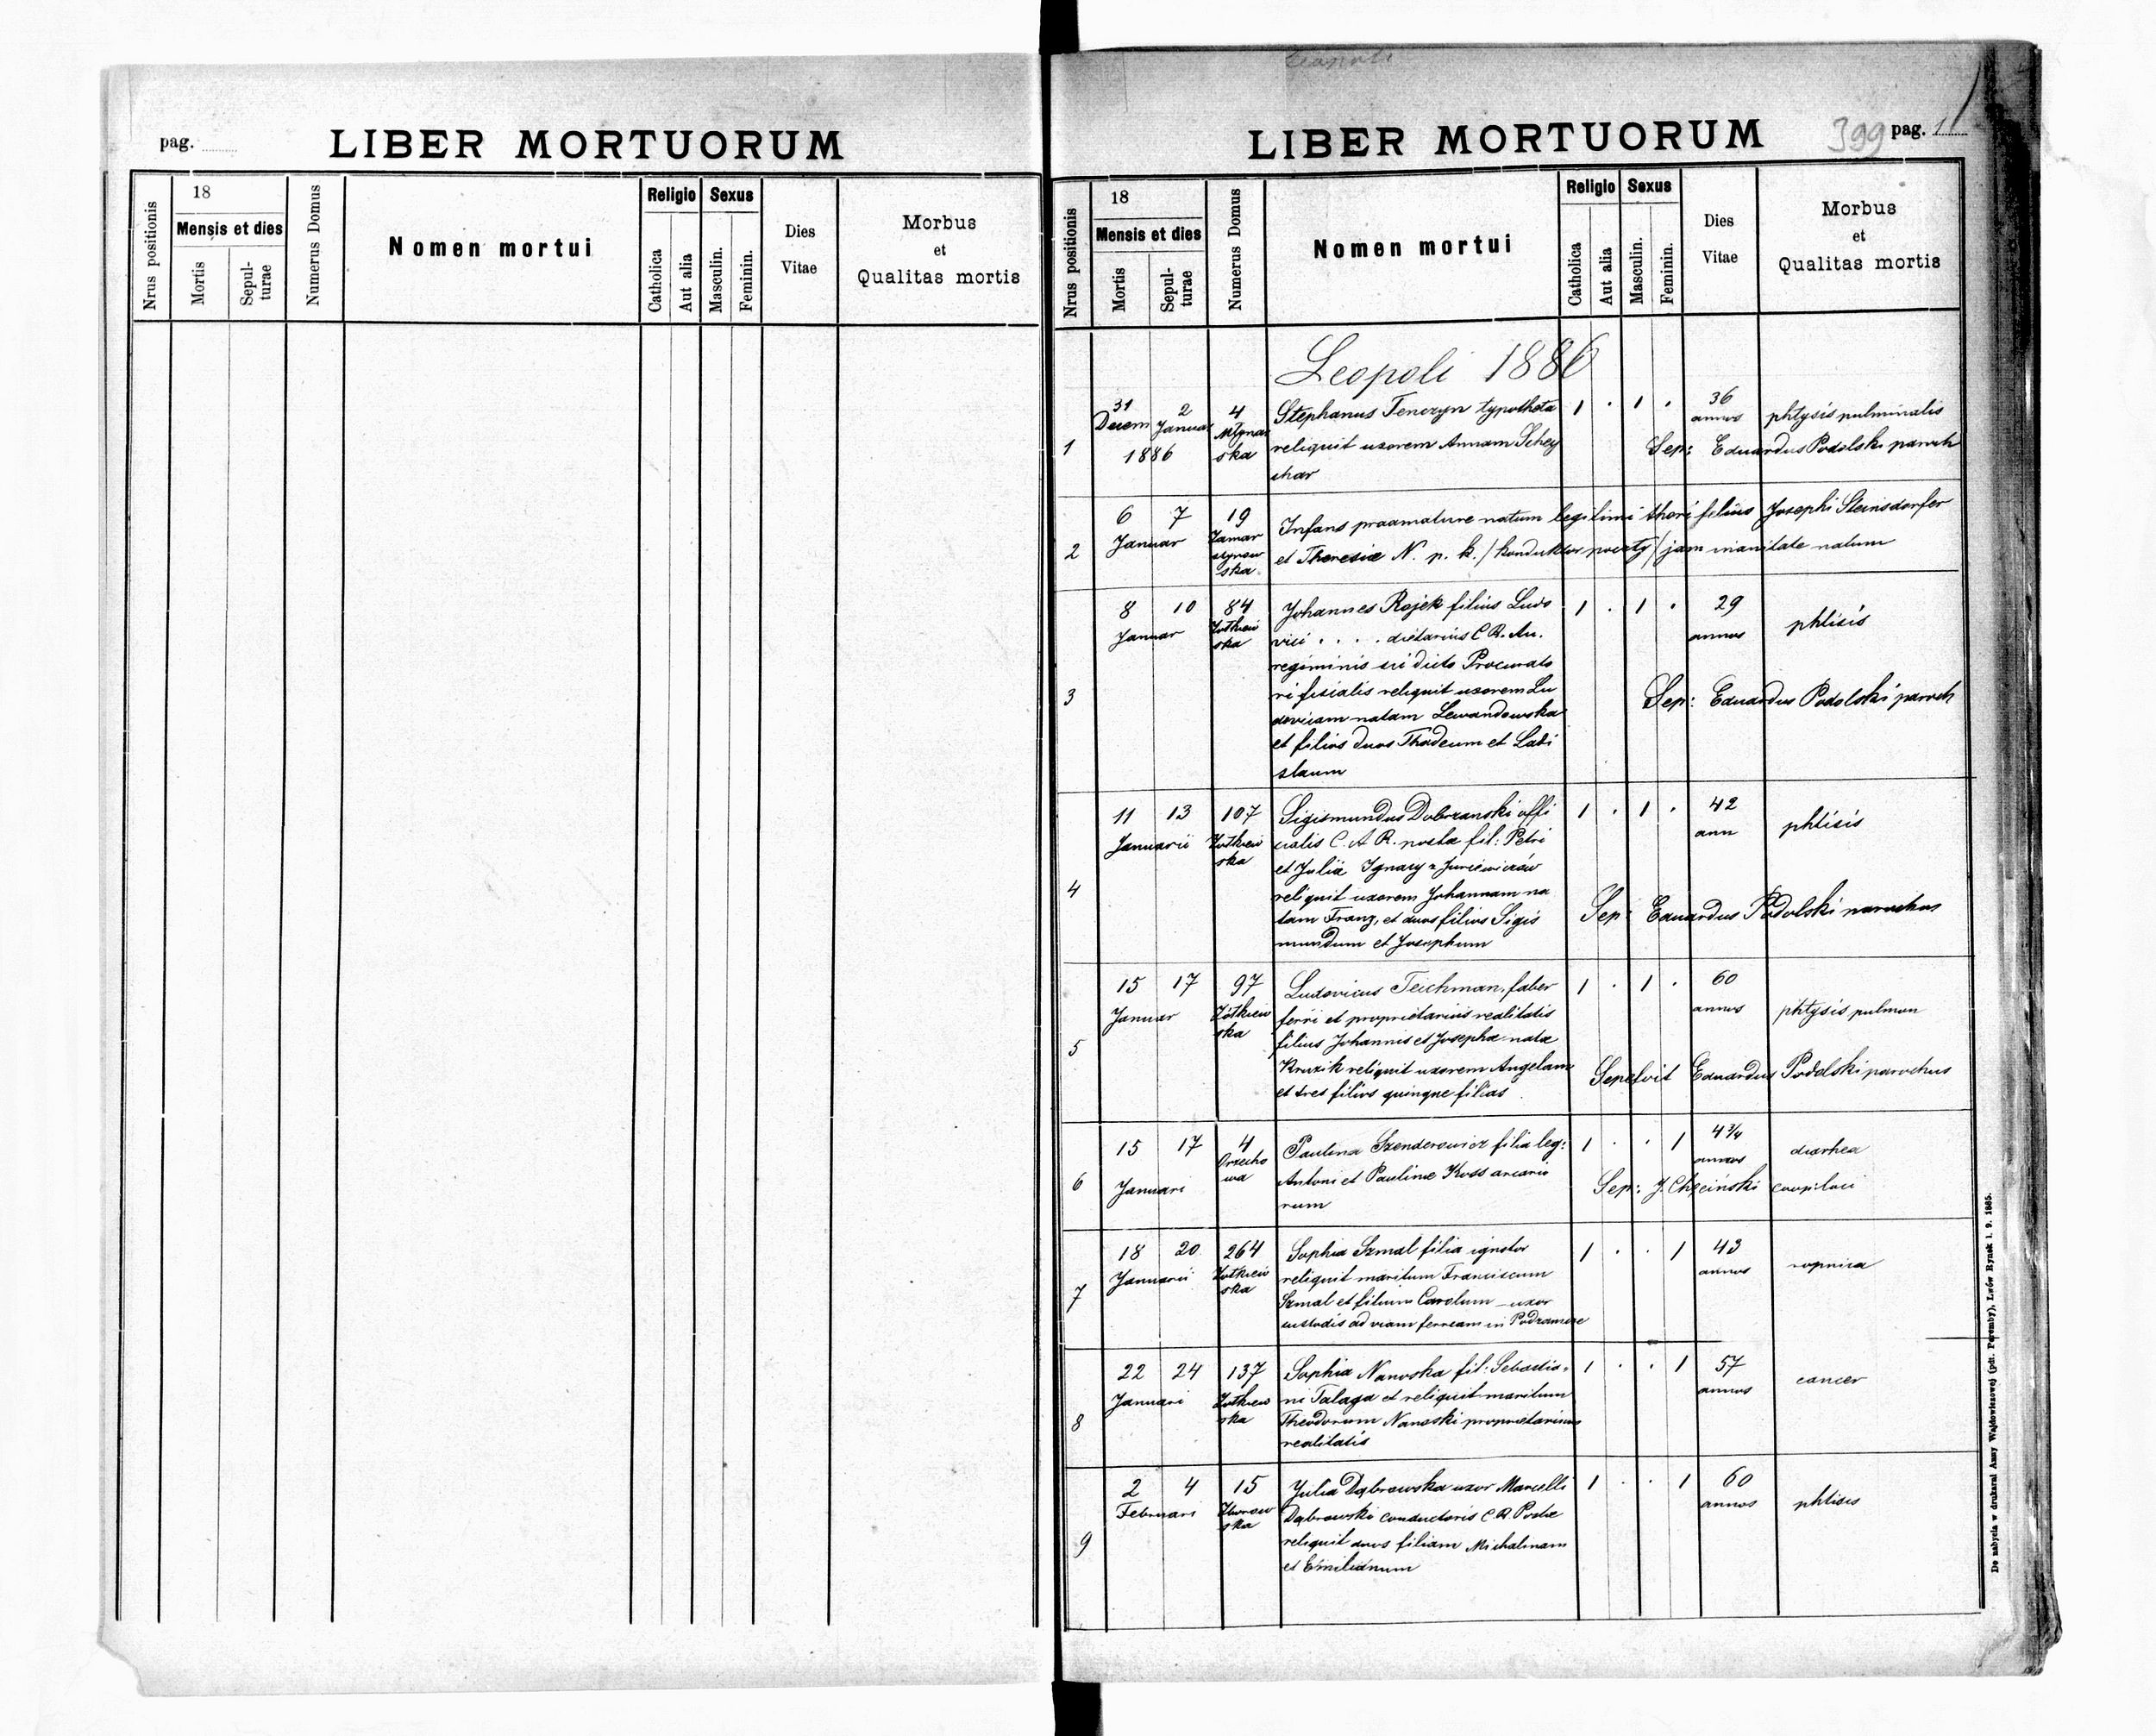 pag.
LIBER MORTUORUM
Nrus positionis
18
Mensis et dies
Mortis
Sepul-
turae
Numerus Domus
Nomen mortui
Religio
Catholica
Aut alia
Sexus
Masculin.
Feminin.
Dies
Vitae
Morbus
et
Qualitas mortis
LIBER MORTUORUM
399 pag. 1
Nrus positionis
18
Mensis et dies
Mortis
Sepul-
turae
Numerus Domus
Nomen mortui
Religio
Catholica
Aut alia
Sexus
Masculin.
Feminin.
Dies
Vitae
Morbus
et
Qualitas mortis
Leopoli 1886
1
31 2
Decem Januar
1886
4
Młynar
ska
Stephanus Tenczyn typotheta
reliquit uxorem Annam Schey
char
1 . 1 .
36
annos
phtysis pulminalis
Sep: Eduardus Podolski paroch
2
6 7
Januar
19
Zamar
stynow
ska
Infans praemature natum legitimi thori filius Josephi Steinsdorfer
et Theresiae N. p. k. / konduktor poczty / jam inanitate natum
3
8 10
Januar
84
Żołkiew
ska
Johannes Rojek filius Ludo
vici . . . . dietarius C R. Au.
regiminis sic dicto Procurato
ri fiscalis reliquit uxorem Lu
dovicam natam Lewandowska
et filios duos Thadeum et Ladi
slaum
1 . 1 .
29
annos
phtisis
Sep: Eduardus Podolski paroch
4
11 13
Januarii
107
Żołkiew
ska
Sigismundus Dobrzanski offi
cialis C. A R. posta fil: Petri
et Julia Ignacy z Juriewiczów
reliquit uxorem Johannam na
tam Franz, et duos filios Sigis
mundum et Josephum
1 . 1 .
42
ann
phtisis
Sep: Eduardus Podolski parochus
5
15 17
Januar
97
Żółkiew
ska
Ludovicus Teichman, faber
ferri et proprietarius realitatis
filius Johannis et Josepha nata
Kruzik reliquit uxorem Angelam
et tres filios quinque filias
1 . 1 .
60
annos
phtysis pulmon
Sepelvit Eduardus Podolski parochus
6
15 17
Januari
4
Orzecho
wa
Paulina Szenderowicz filia leg:
Antoni et Pauline Koss arcario
rum
1 . . 1
4 3/4
annos
diarhea
Sep: J. Chęciński
7
18 20
Januarii
264
Żołkiew
ska
Sophia Szmal filia ignotor
reliquit maritum Franciscum
Szmal et filium Carolum uxor
custodis ad viam ferream in Podzamcze
1 . . 1
43
annos
ropnica
8
22 24
Januari
137
Żołkiew
ska
Sophia Nanoska fil: Sebastia-
ni Talaga et reliquit maritum
Theodorum Nanoski proprietarius
realitatis
1 . . 1
57
annos
cancer
9
2 4
Februari
15
ska
Julia Dąbrowska uxor Marcelli
Dąbrowski conductoris C R. Postae
reliquit duos filiam Michalinam
et Emilianum
1 . . 1
60
annos
phtisis
De nabycia w drukarni Anny Wajdowiczowej (pdt. Poremby), Lwów Rynek l. 9. 1885.